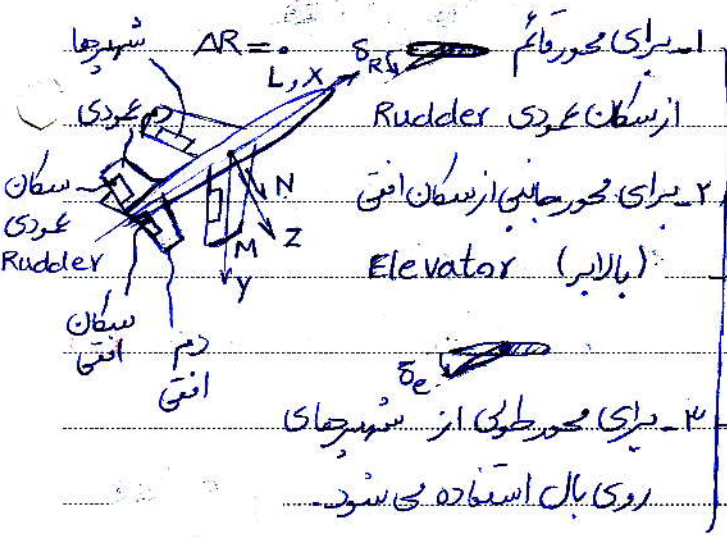 ۱ـ برای محور قائم
از سکان عمودی Rudder
۲ـ برای محور جانبی از سکان افقی
(بالابر) Elevator
۳ـ برای محور طولی از شهپرهای
روی بال استفاده می شود.
شهپرها
ΔR = ۰
δR
L, X
دم عمودی
سکان
عمودی
Rudder
N
Z
M
Y
سکان
افقی
دم
افقی
δe